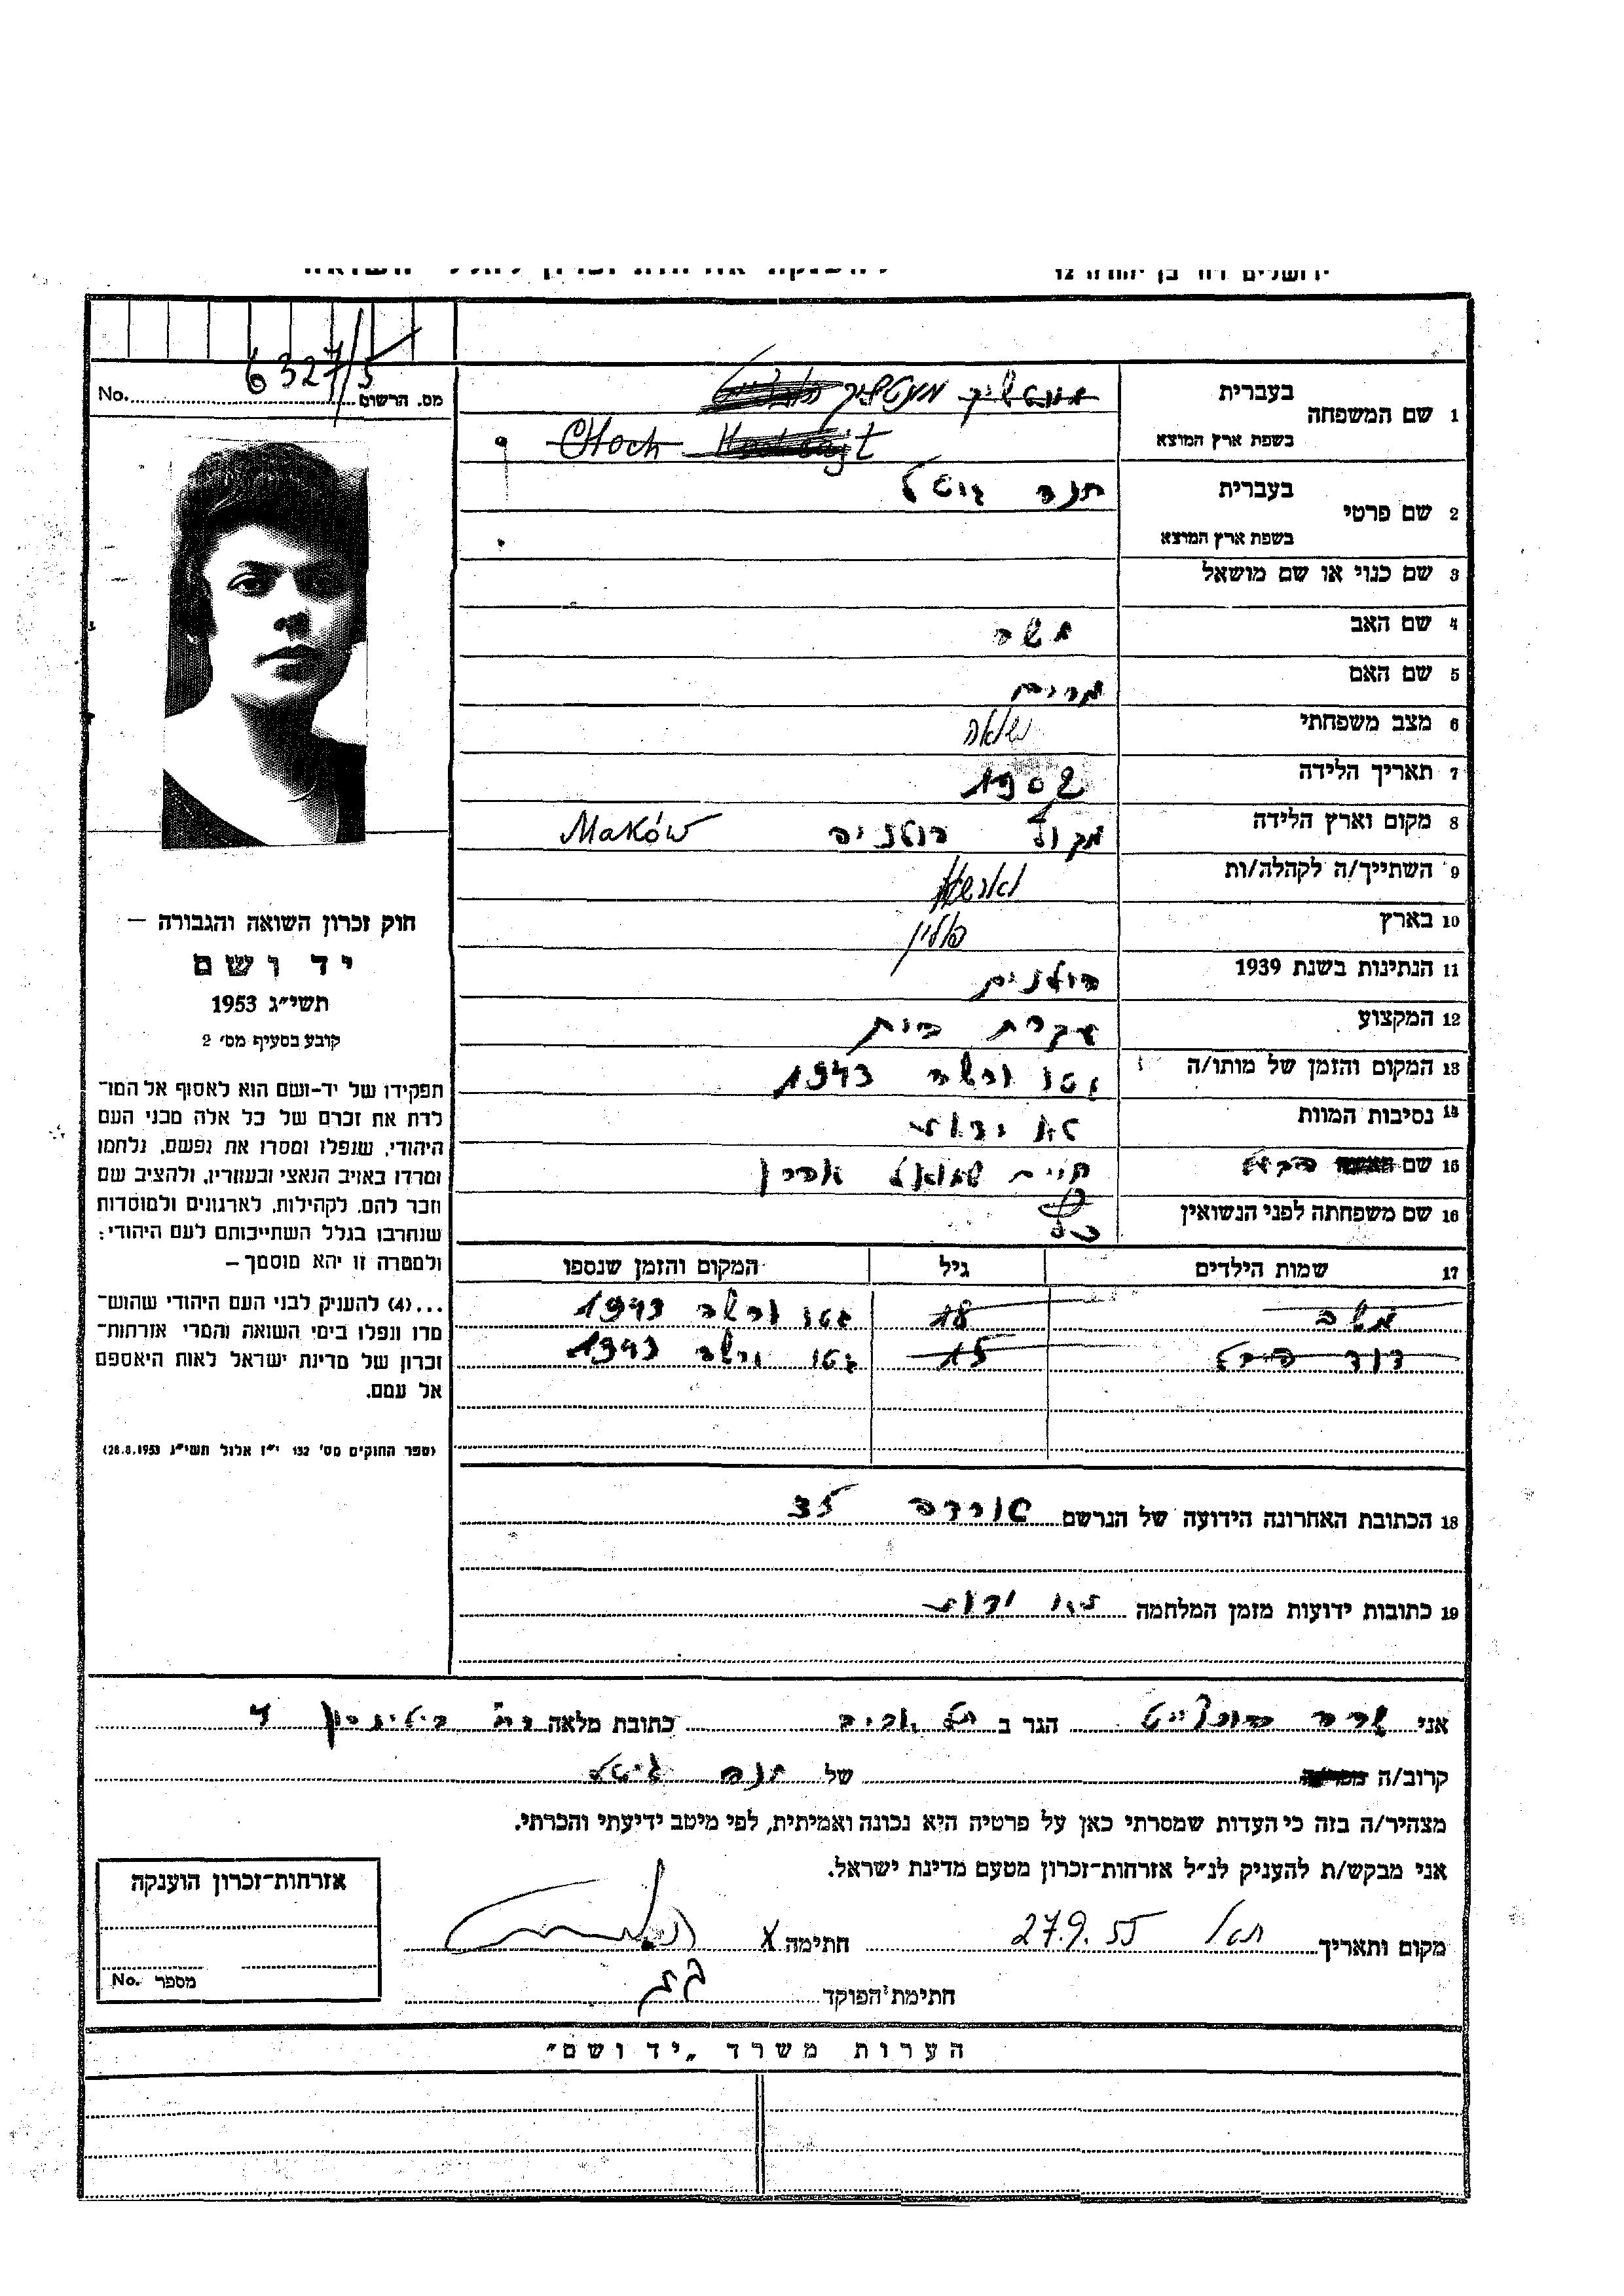 ירושלים רח' בן יהודה 12
6327/5
מס. הרשום No.
1 שם המשפחה
בעברית
בשפת ארץ המוצא
Choch
2 שם פרטי
בעברית חנה גיטל
בשפת ארץ המוצא
3 שם כנוי או שם מושאל
4 שם האב משה
5 שם האם מרים
6 מצב משפחתי נשואה
7 תאריך הלידה 1902
8 מקום וארץ הלידה מקוב פולניה Maków
9 השתייך/ה לקהלה/ות ווארשא
10 בארץ פולין
11 הנתינות בשנת 1939 פולנית
12 המקצוע עקרת בית
13 המקום והזמן של מותו/ה גטו ורשה 1943
14 נסיבות המוות לא ידוע
15 שם הבעל חיים שמואל
16 שם משפחתה לפני הנשואין
17 שמות הילדים גיל המקום והזמן שנספו
משה 18 גטו ורשה 1943
דוד 15 גטו ורשה 1943
18 הכתובת האחרונה הידועה של הנרשם
19 כתובות ידועות מזמן המלחמה לא ידוע
חוק זכרון השואה והגבורה –
יד ושם
תשי״ג 1953
קובע בסעיף מס׳ 2
תפקידו של יד-ושם הוא לאסוף אל המו־
לדת את זכרם של כל אלה מבני העם
היהודי, שנפלו ומסרו את נפשם, נלחמו
ומרדו באויב הנאצי ובעוזריו, ולהציב שם
וזכר להם, לקהילות, לארגונים ולמוסדות
שנחרבו בגלל השתייכותם לעם היהודי;
ולמטרה זו יהא מוסמך –
...(4) להעניק לבני העם היהודי שהוש־
מדו ונפלו בימי השואה והמרי אזרחות־
זכרון של מדינת ישראל לאות היאספם
אל עמם.
(ספר החוקים מס׳ 132 י״ז אלול תשי״ג 28.8.1953)
אני שרה הגר ב תל אביב כתובת מלאה רח 4
קרוב/ה של חנה גיטל
מצהיר/ה בזה כי העדות שמסרתי כאן על פרטיה היא נכונה ואמיתית, לפי מיטב ידיעתי והכרתי.
אני מבקש/ת להעניק לנ״ל אזרחות־זכרון מטעם מדינת ישראל.
מקום ותאריך 27.9.55 חתימה X
חתימת הפוקד
אזרחות־זכרון הוענקה
מספר No.
הערות משרד „יד ושם״